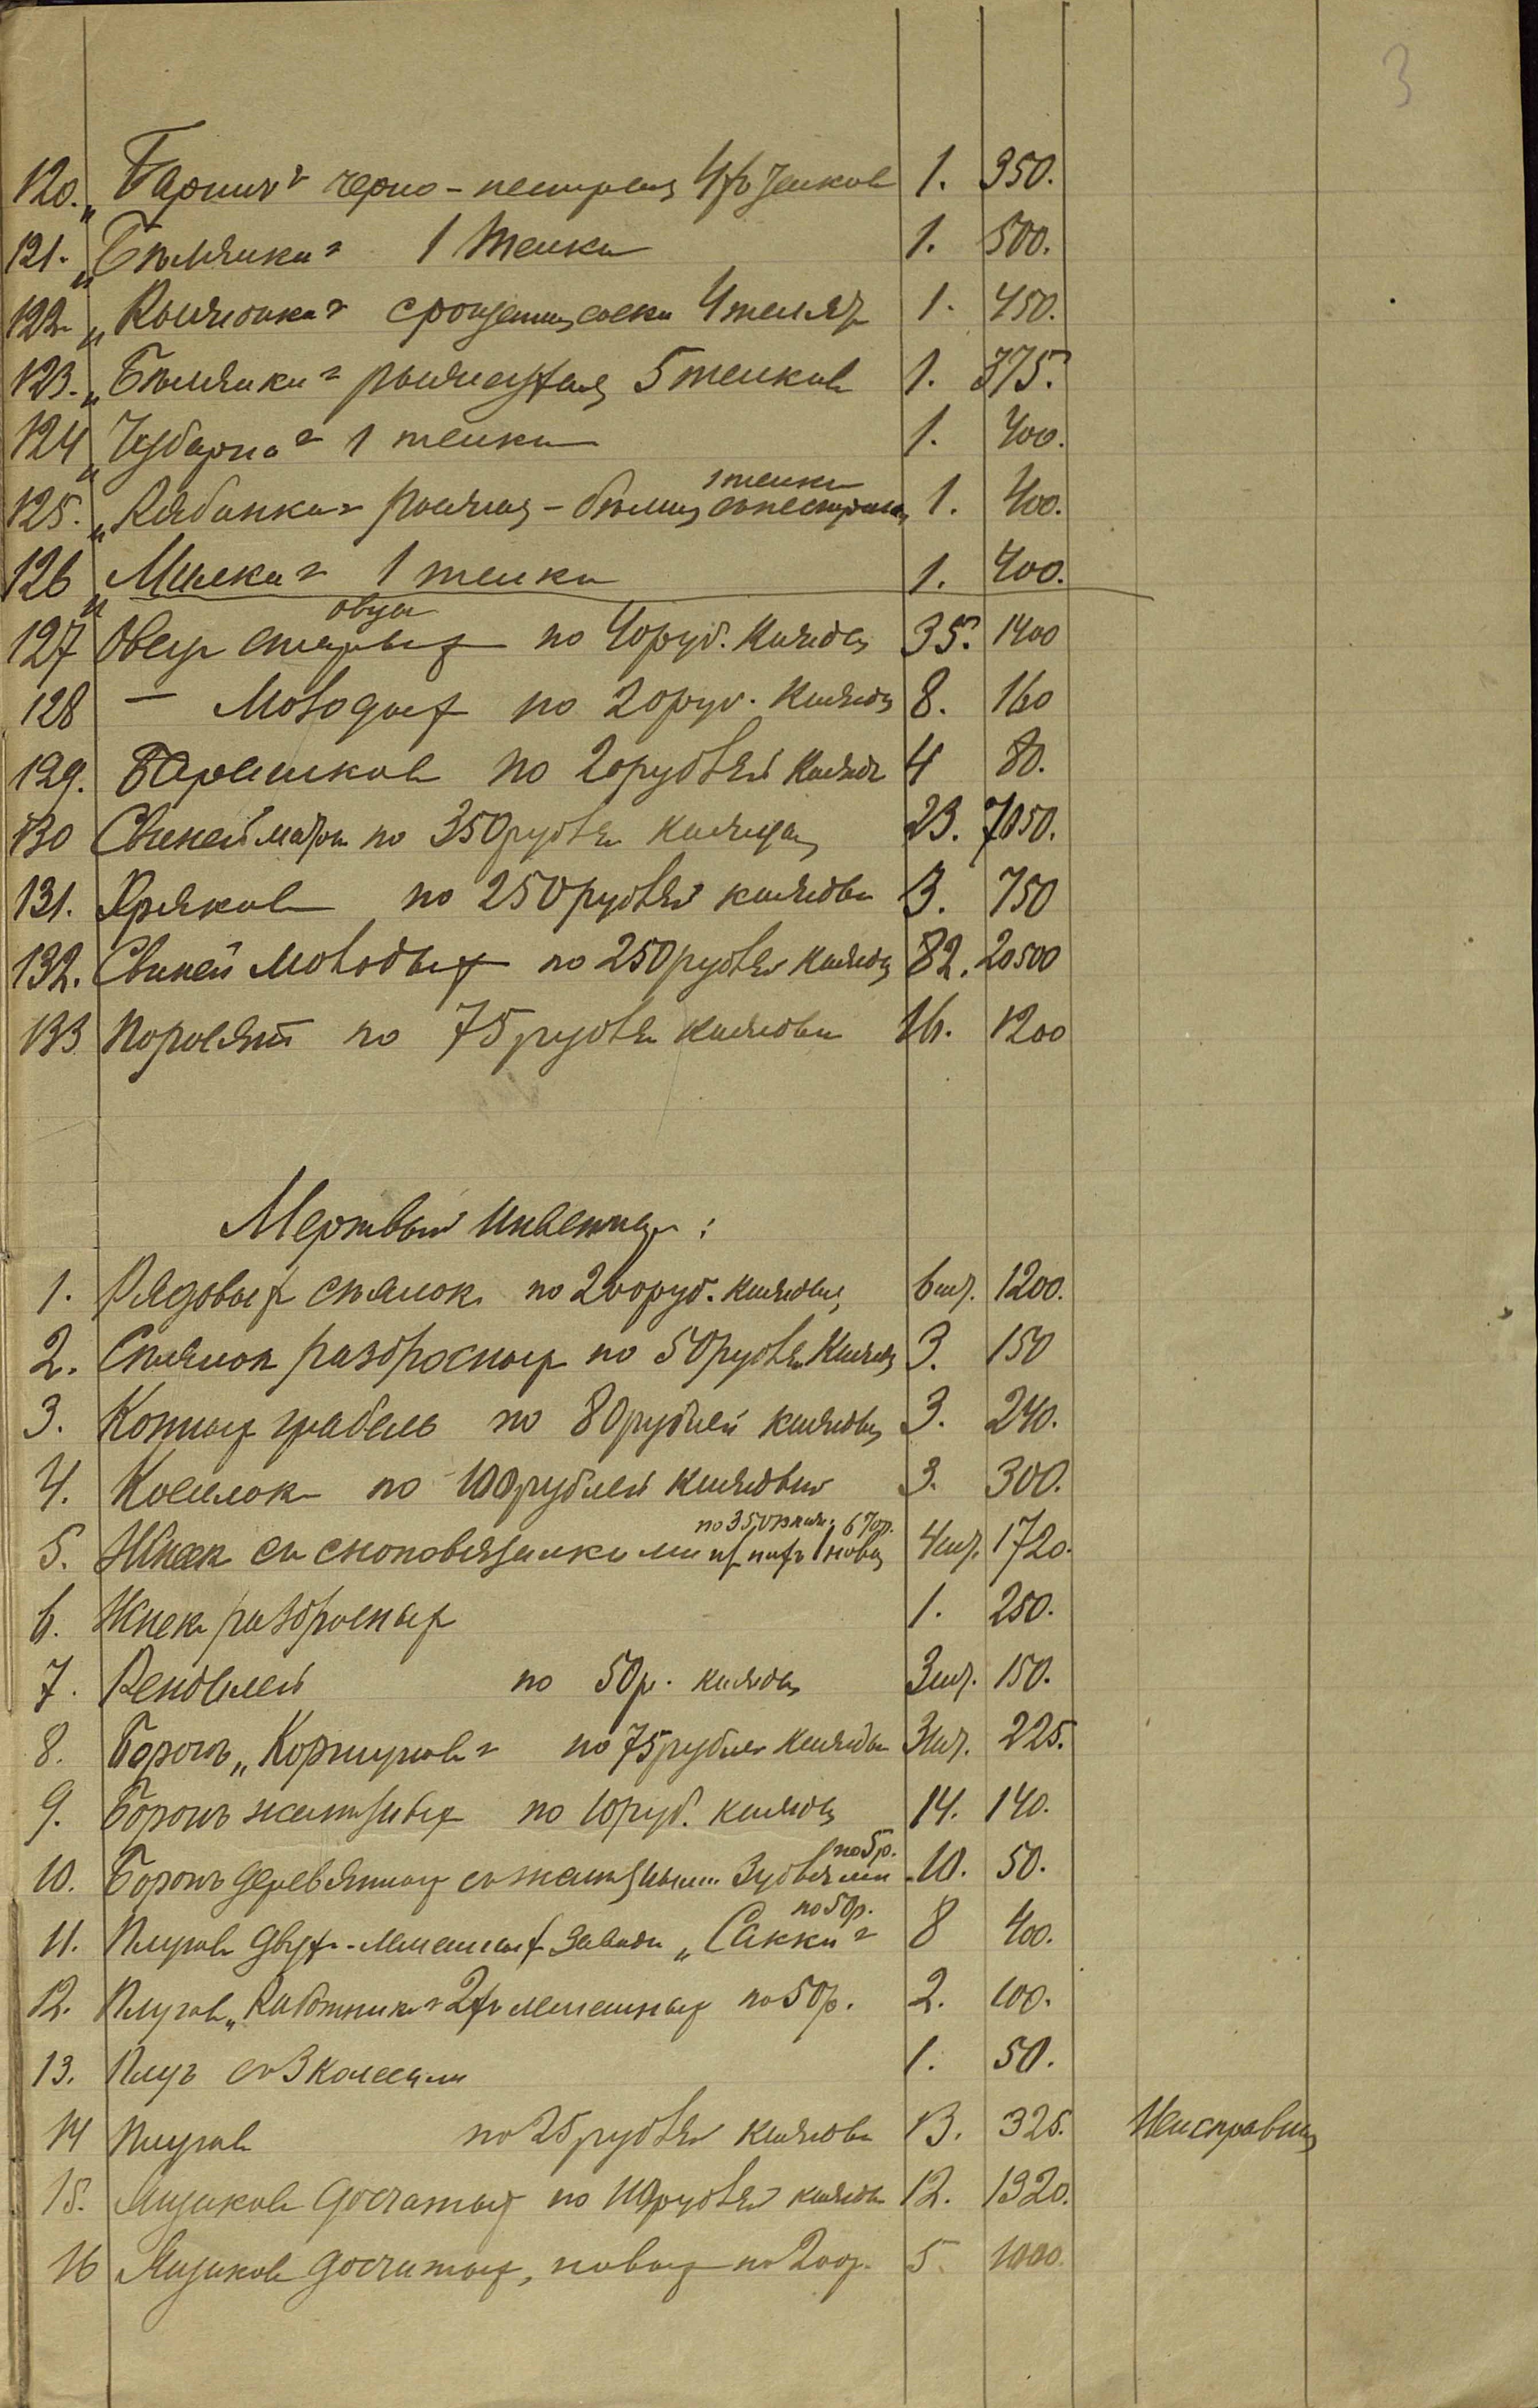 3
120. „Барыня“ черно-пестрая 4х телков 1. 350.
121. „Бѣлянка“ 1 телка 1. 500.
122. „ 4 1. 450.
123. „Бѣлянка“ 5 телков 1. 375.
124 „Чубарка“ 1 телка 1. 400.
1 телка
125. „Рябинка“ рыжая-бѣлая 1. 400.
126 „Милка“ 1 телка 1. 400.
овцы
127 Овец старых по 40 руб. каждая 35. 1400
128 — Молодых по 20 руб. каждая 8. 160
129. Барашков по 20 рублей каждый 4 80.
130 Свиней маток по 350 рублей каждая 23. 7050.
131. Хряков по 250 рублей каждый 3. 750
132. Свиней молодых по 250 рублей каждая 82. 20500
133 Поросят по 75 рублей каждый 16. 1200
Мертвый инвентарь:
1. Рядовых сѣялок по 200 руб. каждая 6 шт. 1200.
2. Сѣялок разбросных по 50 рублей каждая 3. 150
3. Конных грабель по 80 рублей каждыя 3. 240.
4. Косилок по 100 рублей каждый 3. 300.
по 350 670р.
5. Жнеек со сноповязалками из них 1 новая 4 шт. 1720.
6. Жнеек разбросных 1. 250.
7. по 50 р. каждая 3 шт. 150.
8. Борон „ по 75 рублей каждая 3 шт. 225.
9. Борон желѣзных по 10 руб. каждая 14. 140.
по 5р.
10. Борон деревянных со желѣзными зубьями 10. 50.
по 50р.
11. Плугов двух-лемешных завода „Сакки“ 8 400.
12. Плугов „Работник“ 2х лемешных по 50р. 2. 100.
13. Плуг со 3 колесами 1. 50.
14 Плугов по 25 рублей каждый 13. 325. Неисправны
15. дощатых по 110 рублей каждый 12. 1320.
16 дощатых, новых по 200р. 5. 1000.